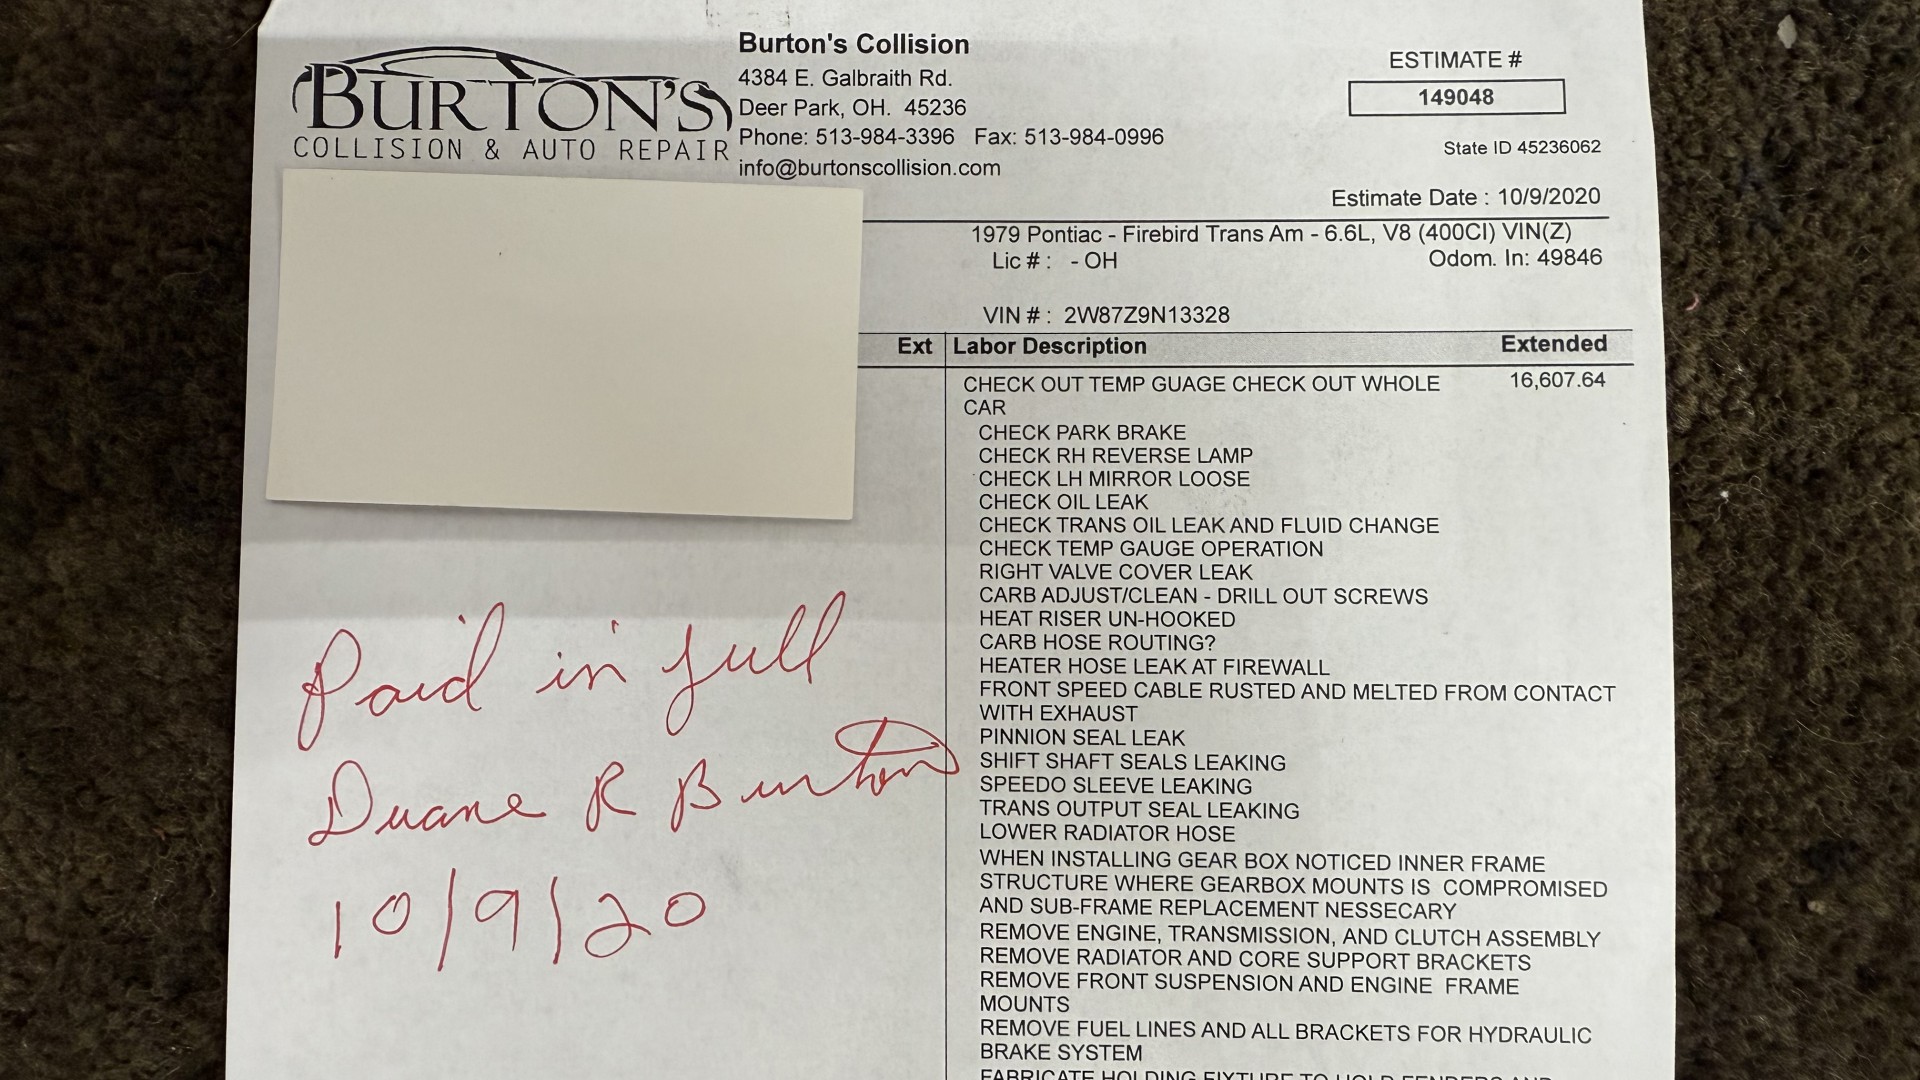 BURTON'S
COLLISION & AUTO REPAIR
Burton's Collision
4384 E. Galbraith Rd.
Deer Park, OH. 45236
Phone: 513-984-3396 Fax: 513-984-0996
info@burtonscollision.com
ESTIMATE #
149048
State ID 45236062
Estimate Date : 10/9/2020
1979 Pontiac - Firebird Trans Am - 6.6L, V8 (400CI) VIN(Z)
Lic # : - OH
Odom. In: 49846
VIN # : 2W87Z9N13328
Ext
Labor Description
Extended
CHECK OUT TEMP GUAGE CHECK OUT WHOLE
16,607.64
CAR
CHECK PARK BRAKE
CHECK RH REVERSE LAMP
CHECK LH MIRROR LOOSE
CHECK OIL LEAK
CHECK TRANS OIL LEAK AND FLUID CHANGE
CHECK TEMP GAUGE OPERATION
RIGHT VALVE COVER LEAK
CARB ADJUST/CLEAN - DRILL OUT SCREWS
HEAT RISER UN-HOOKED
CARB HOSE ROUTING?
HEATER HOSE LEAK AT FIREWALL
FRONT SPEED CABLE RUSTED AND MELTED FROM CONTACT
WITH EXHAUST
PINNION SEAL LEAK
SHIFT SHAFT SEALS LEAKING
SPEEDO SLEEVE LEAKING
TRANS OUTPUT SEAL LEAKING
LOWER RADIATOR HOSE
WHEN INSTALLING GEAR BOX NOTICED INNER FRAME
STRUCTURE WHERE GEARBOX MOUNTS IS COMPROMISED
AND SUB-FRAME REPLACEMENT NESSECARY
REMOVE ENGINE, TRANSMISSION, AND CLUTCH ASSEMBLY
REMOVE RADIATOR AND CORE SUPPORT BRACKETS
REMOVE FRONT SUSPENSION AND ENGINE FRAME
MOUNTS
REMOVE FUEL LINES AND ALL BRACKETS FOR HYDRAULIC
BRAKE SYSTEM
FABRICATE HOLDING FIXTURE TO HOLD FENDERS AND
Paid in full
Duane R Burton
10/9/20